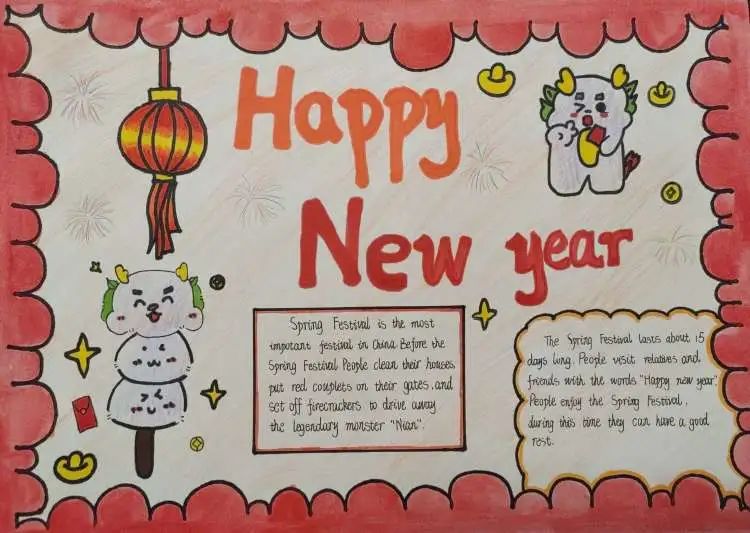 Happy
New year
Spring Festival is the most
important festival in China. Before the
Spring Festival People clean their houses
put red couplets on their gates. and
set off firecrackers to drive away
the legendary monster "Nian".
The Spring Festival lasts about 15
days long. People visit relatives and
friends with the words "Happy new year".
People enjoy the Spring Festival,
during this time they can have a good
rest.